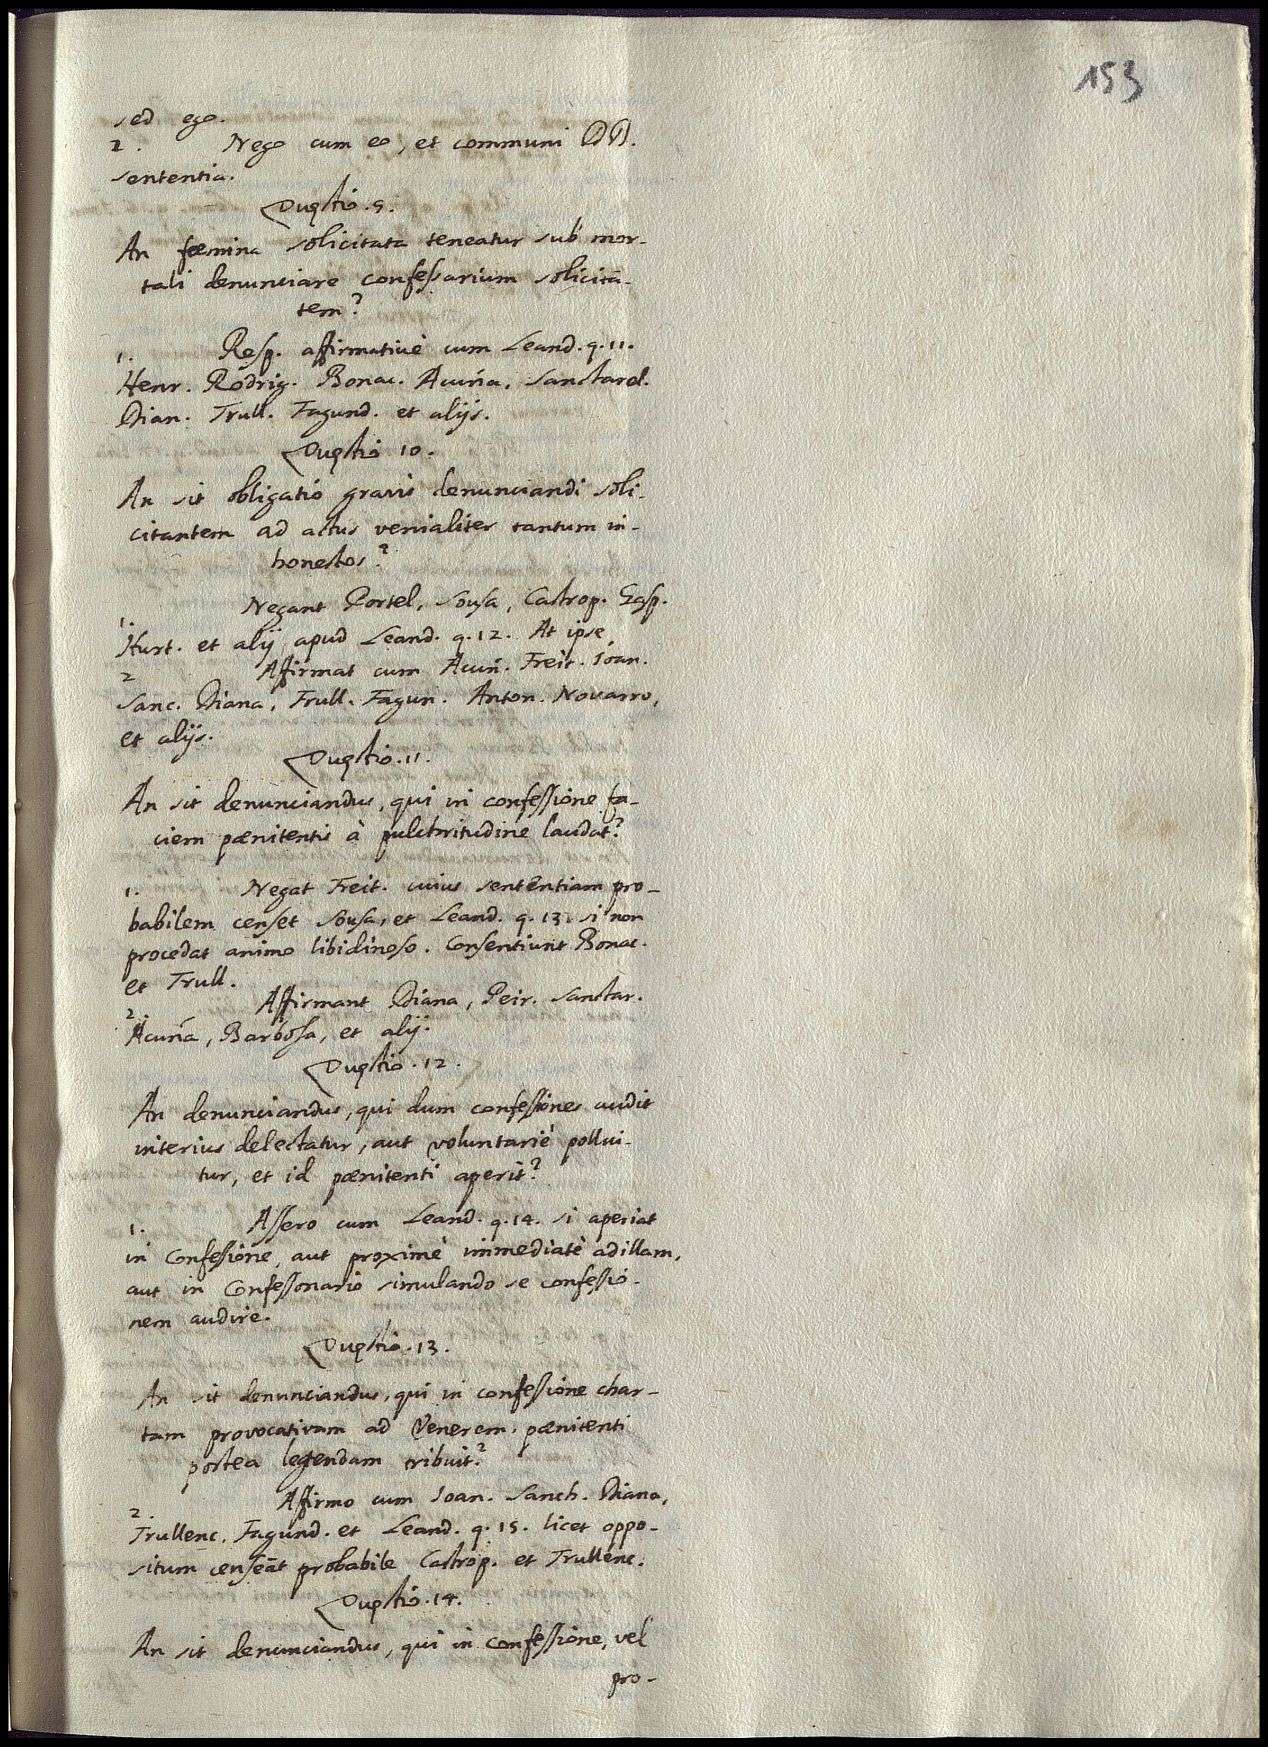 153
sed ego.
2. Nego cum eo, et communi DD.
sententia.
Quęstio.9.
An fæmina solicitata teneatur sub mor-
tali denunciare confessarium solicitā-
tem?
1. Resp. affirmativè cum Leand. q. 11.
Henr. Rodrig. Bonac. Acuña. Sanctarel.
Dian. Trull. Fagund. et alijs.
Quęstio 10.
An sit obligatio gravis denunciandi soli-
citantem ad actus venialiter tantum in-
honestos?
1. Negant Portel, Sousa, Castrop. Gasp.
Hurt. et alij apud Leand. q. 12. At ipse
2 Affirmat cum Acuñ. Freit. Ioan.
Sanc. Diana, Trull. Fagun. Anton. Novarro,
et alijs.
Quęstio.11.
An sit denunciandus, qui in confessione fa-
ciem pænitentis à pulchritudine laudat?
1. Negat Freit. cuius sententiam pro-
babilem censet Sousa, et Leand. q. 13. si non
procedat animo libidinoso. Consentiunt Bonac.
et Trull.
2. Affirmant Diana, Peir. Sanctar.
Acuña, Barbosa, et alij.
Quęstio.12.
An denunciandus, qui dum confessiones audit
interius delectatur, aut voluntariè pollui-
tur, et id pænitenti aperit?
1. Assero cum Leand. q. 14. si aperiat
in Confessione, aut proximè immediatè ad illam,
aut in Confessonario simulando se confessio-
nem audire.
Quęstio.13.
An sit denunciandus, qui in confessione char-
tam provocativam ad Venerem, pænitenti
postea legendam tribuit?
2. Affirmo cum Ioan. Sanch. Diana,
Trullenc. Fagund. et Leand. q. 15. licet oppo-
situm censeāt probabile Castrop. et Trullenc.
Quęstio.14.
An sit denunciandus, qui in confessione, vel
pro-